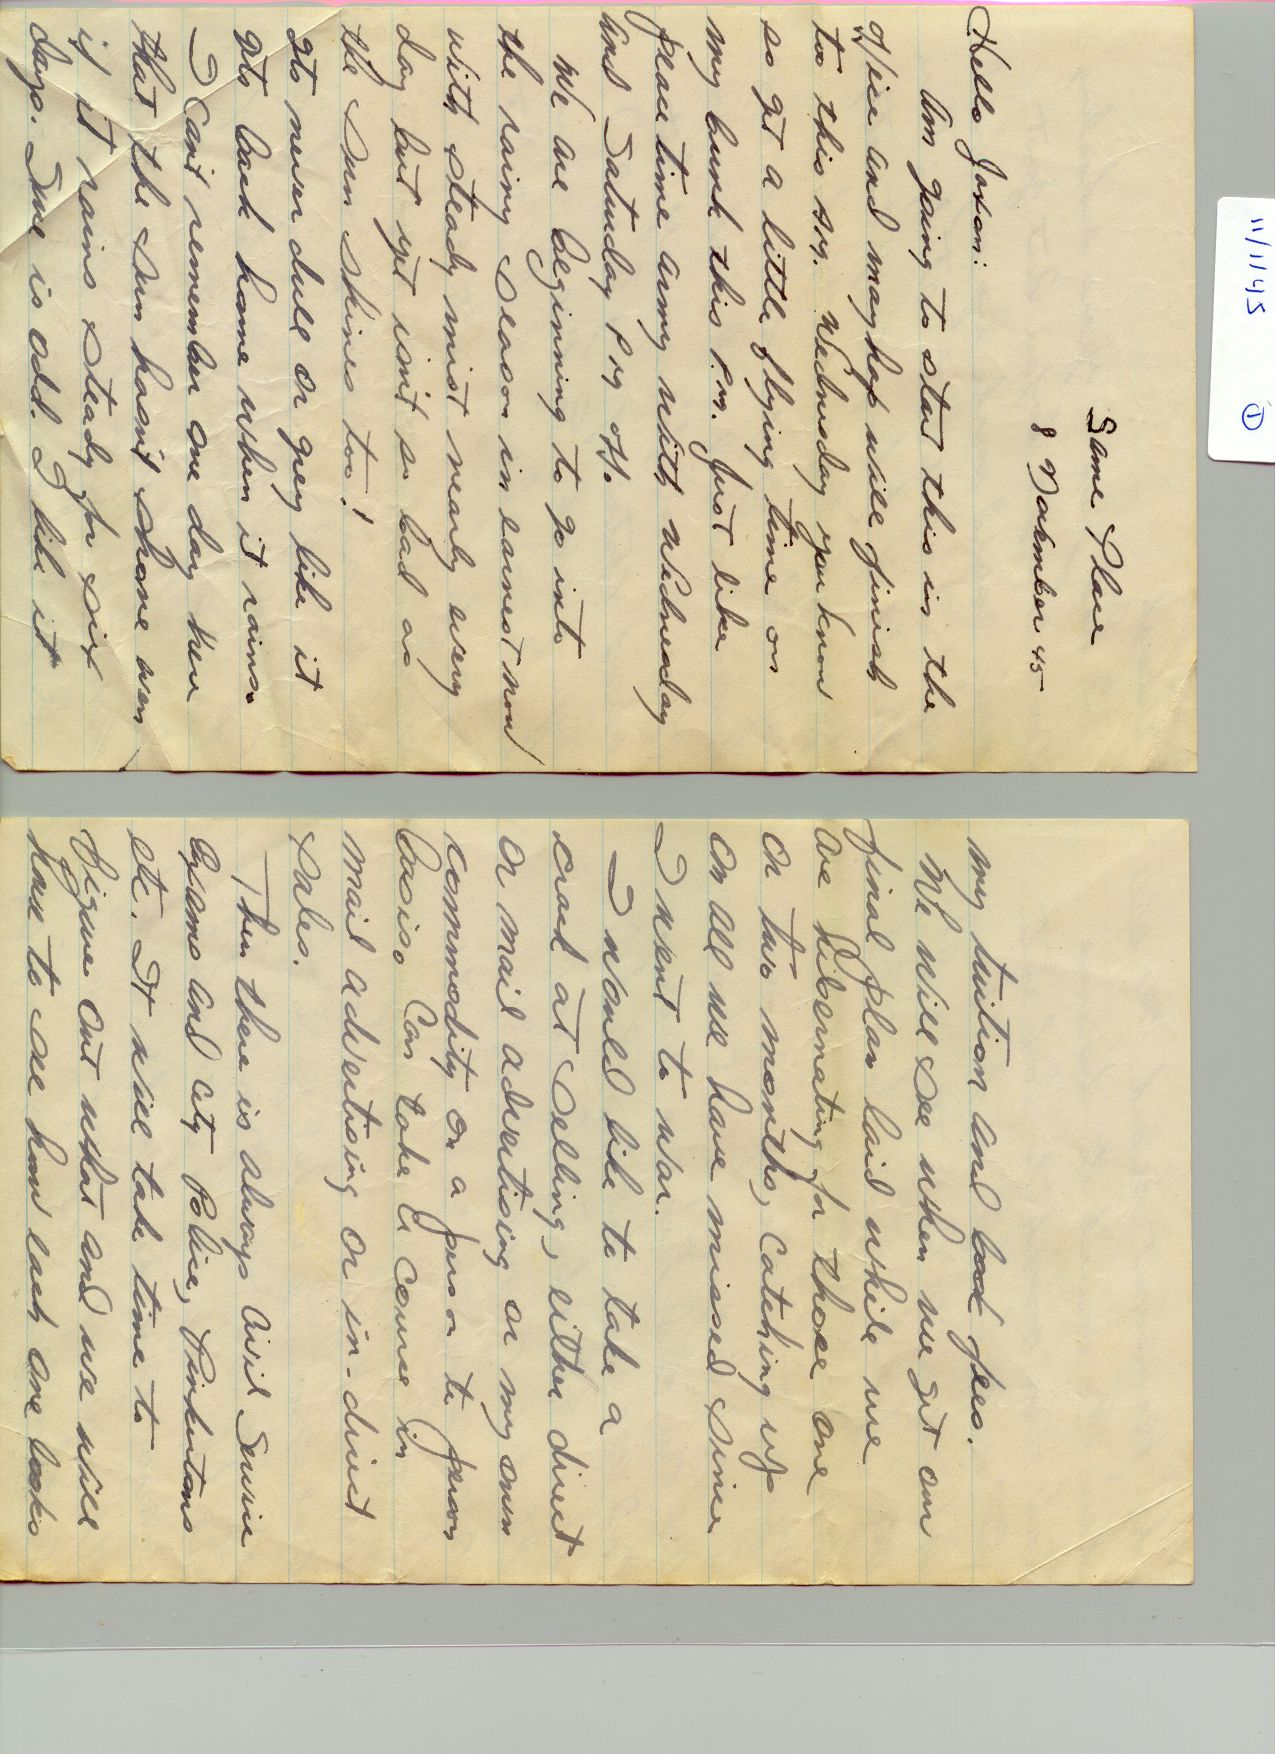 11/1/45 ①
Same Place
8 November 45
Hello Jaxon:
Am going to start this in the
office and mayhap will finish
too this aft. Wednesday you know
so get a little flying time on
my bunk this P.M. Just like
peace time army with Wednesday
and Saturday P.M. off.
We are beginning to go into
the rainy season in earnest now
with steady mist nearly every
day but yet isn't so bad as
the sun shines too!
Gts never dull or grey like it
gts back home when it rains.
I can't remember one day here
that the sun hasn't shone even
if it rains steady for six
days. Sure is odd. I like it
my tuition and book fees.
We will see when we get our
final plan laid while we
are hibernating for those one
or two months, catching up
on all we have missed since
I went to war.
I would like to take a
crack at selling, either direct
or mail advertising or my own
commodity on a person to person
basis. Can take a course in
mail advertising or in-direct
sales.
Then there is always Civil Service
Exams and city Police, Pinkertons
etc. It will take time to
figure out what and we will
have to see how each one looks